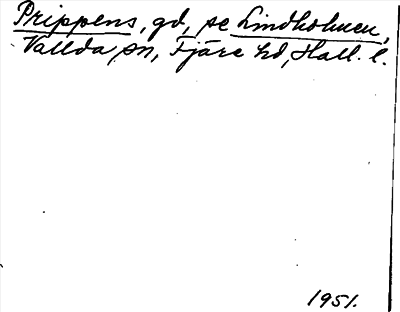 Prippens, gd, se Lindholmen,
Vallda sn, Fjäre hd, Hall. l.
1951.